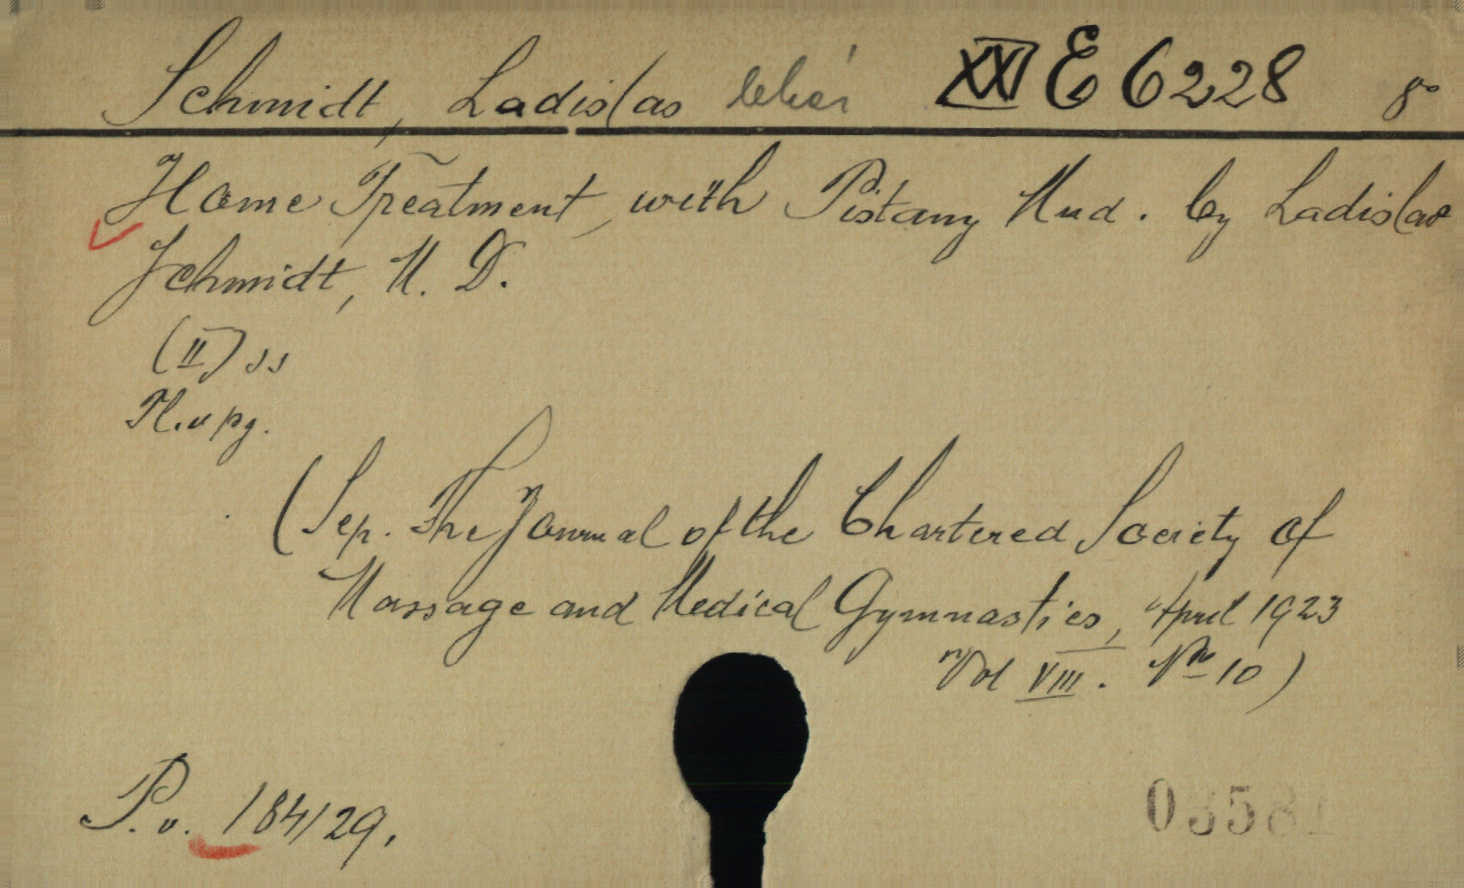 Schmidt, Ladislas XXI E 6228 8°
Home Treatment, with Pistany Mud. by Ladislas
Schmidt, M. D.
(II)
H. u pg.
(Sep. The Journal of the Chartered Society of
Massage and Medical Gymnastics, April 1923
Vol VIII. Nr 10)
P. v. 184/29.